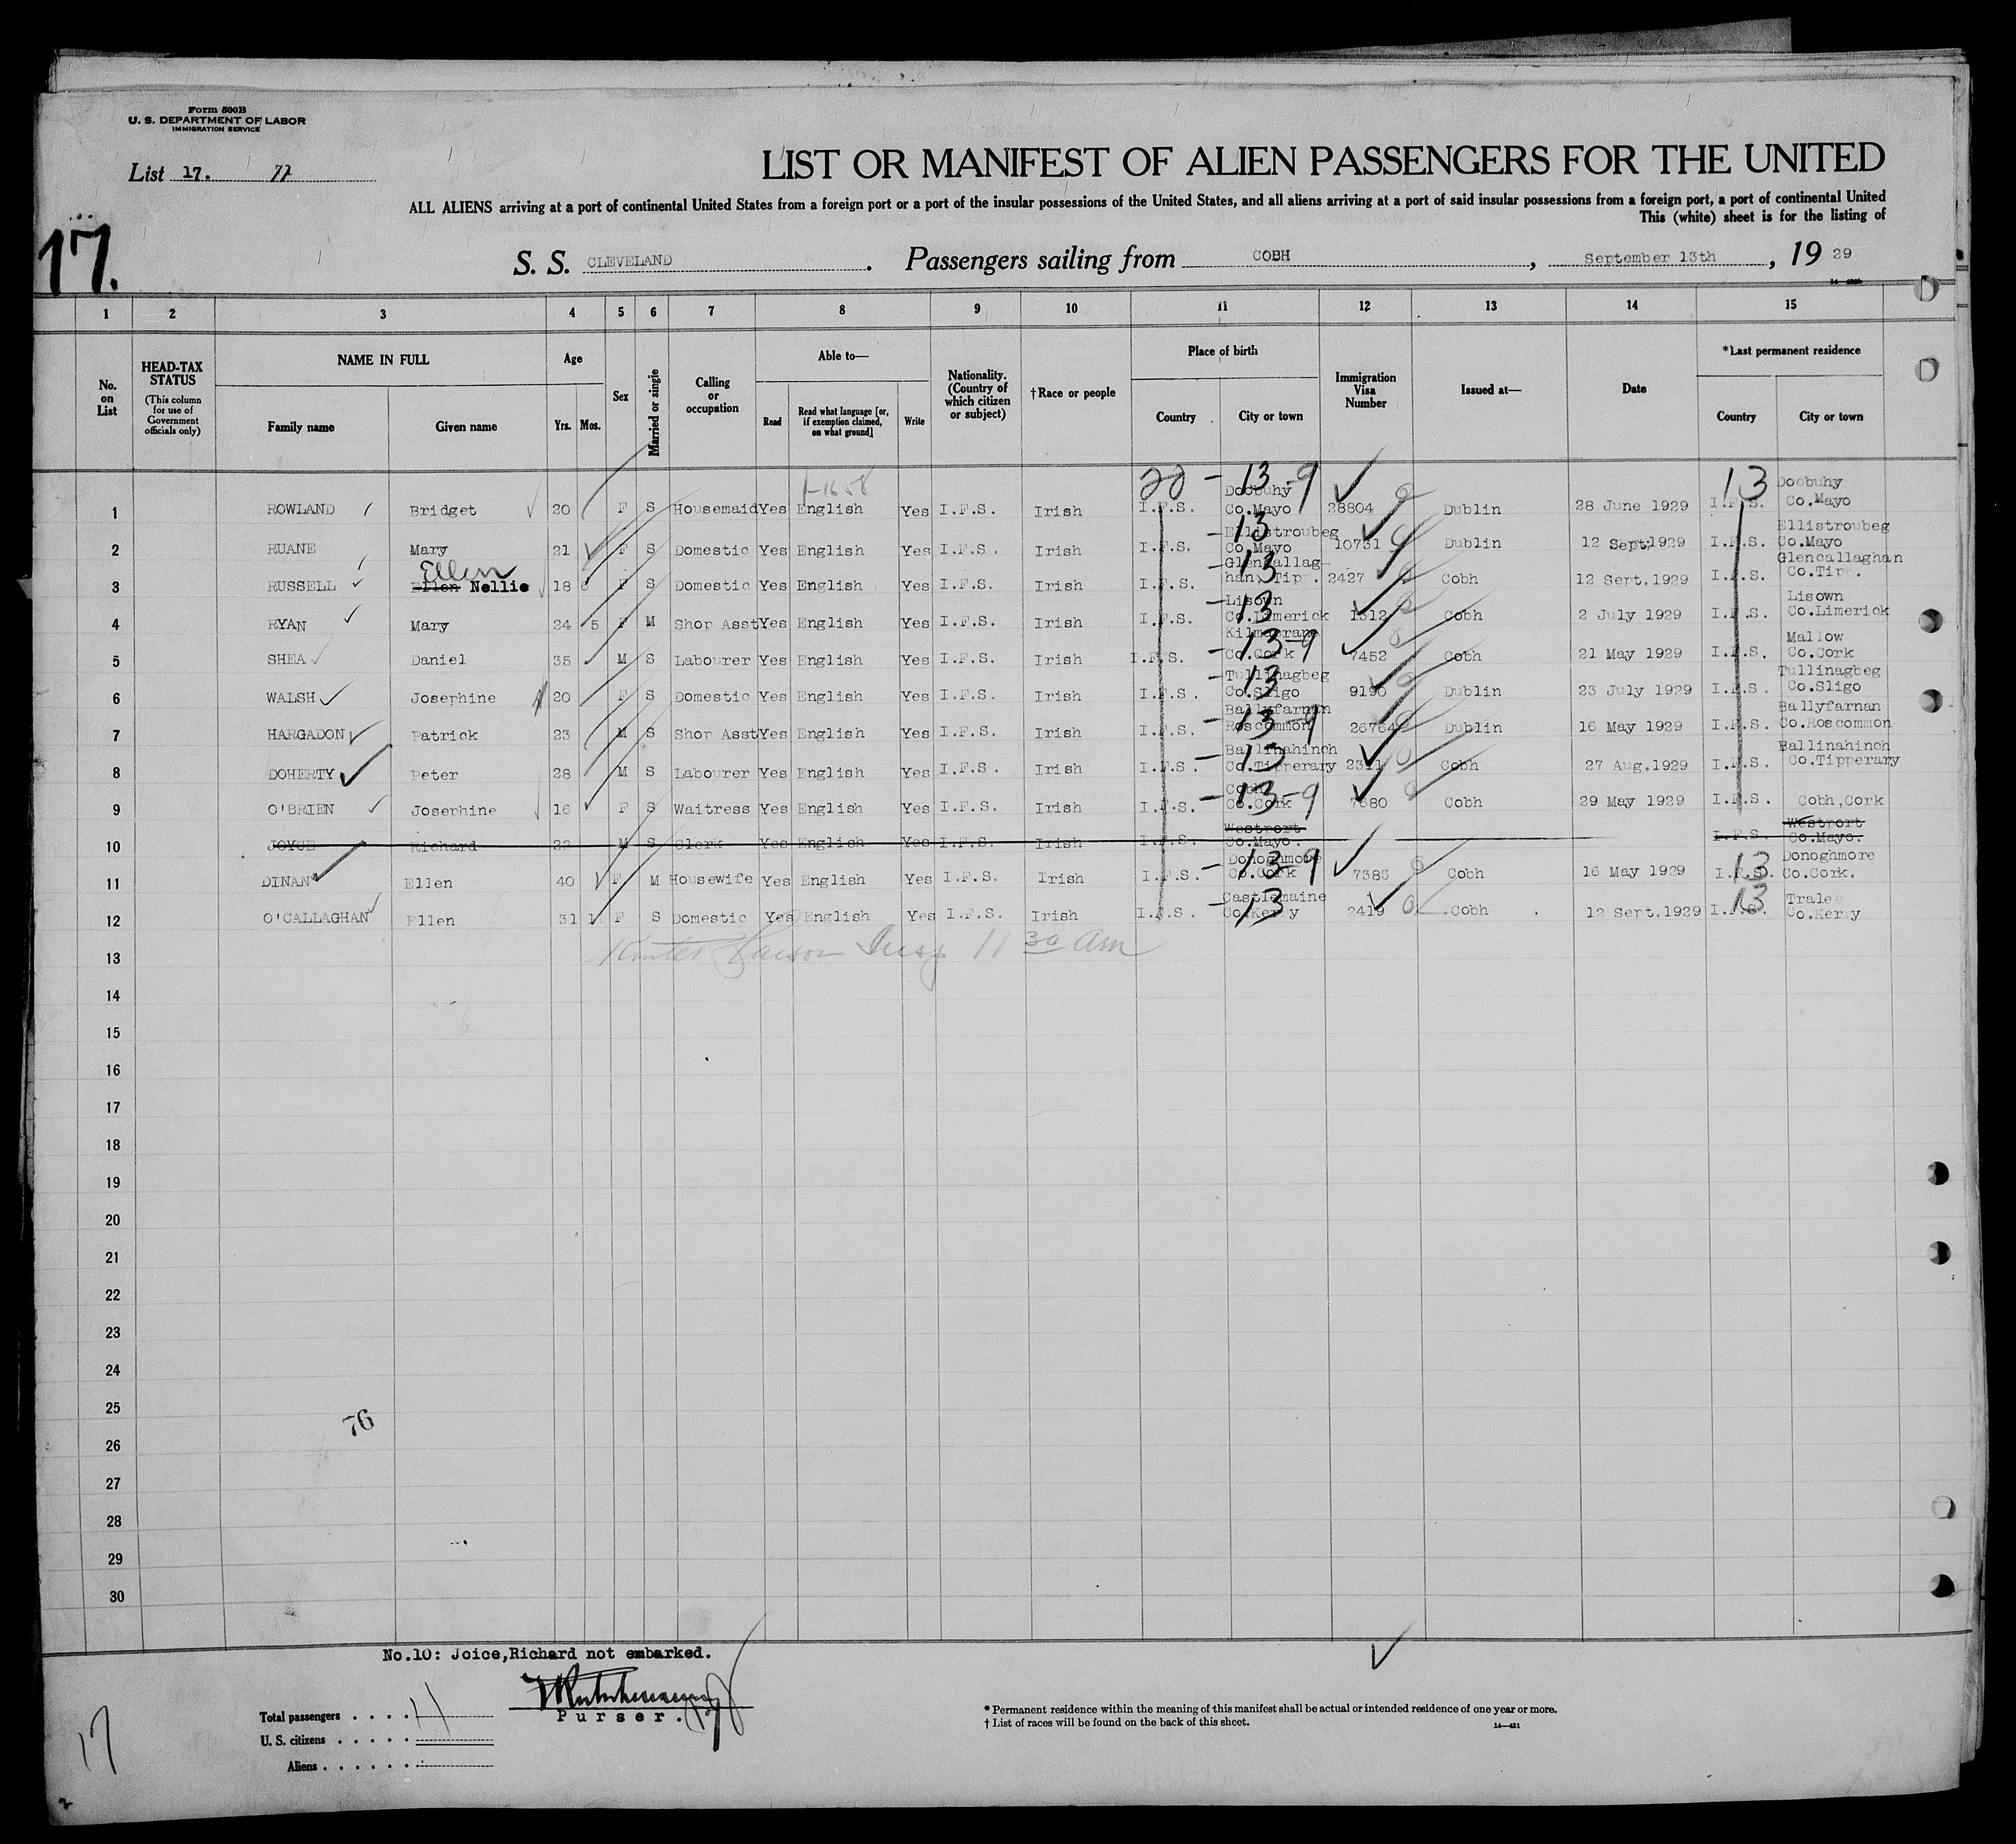 Form 500B
U. S. DEPARTMENT OF LABOR
IMMIGRATION SERVICE
List 17. 77
LIST OR MANIFEST OF ALIEN PASSENGERS FOR THE UNITED
ALL ALIENS arriving at a port of continental United States from a foreign port or a port of the insular possessions of the United States, and all aliens arriving at a port of said insular possessions from a foreign port, a port of continental United
This (white) sheet is for the listing of
17.
S. S. CLEVELAND . Passengers sailing from COBH , September 13th , 19 29
1 2 3 4 5 6 7 8 9 10 11 12 13 14 15
No. on List
HEAD-TAX STATUS (This column for use of Government officials only)
NAME IN FULL
Family name Given name
Age
Yrs. Mos.
Sex
Married or single
Calling or occupation
Able to—
Read Read what language [or, if exemption claimed, on what ground] Write
Nationality. (Country of which citizen or subject)
†Race or people
Place of birth
Country City or town
Immigration Visa Number
Issued at—
Date
*Last permanent residence
Country City or town
20 - 13 - 9 13
1 ROWLAND Bridget 20 F S Housemaid Yes English Yes I.F.S. Irish I.F.S. Doobuhy Co.Mayo 28804 Dublin 28 June 1929 I.F.S. Doobuhy Co.Mayo
2 RUANE Mary 21 F S Domestic Yes English Yes I.F.S. Irish I.F.S. - 13 Ellistroubeg Co.Mayo 10731 Dublin 12 Sept.1929 I.F.S. Ellistroubeg Co.Mayo
Ellen
3 RUSSELL Ellen Nellie 18 6 F S Domestic Yes English Yes I.F.S. Irish I.F.S. - 13 Glencallag-han, Tipp. 2427 Cobh 12 Sept.1929 I.F.S. Glencallaghan Co.Tipp.
4 RYAN Mary 24 5 F M Shop Asst Yes English Yes I.F.S. Irish I.F.S. - 13 Lisown Co.Limerick 1312 Cobh 2 July 1929 I.F.S. Lisown Co.Limerick
5 SHEA Daniel 35 M S Labourer Yes English Yes I.F.S. Irish I.F.S. - 13 - 9 Co.Cork 7452 Cobh 21 May 1929 I.F.S. Mallow Co.Cork
6 WALSH Josephine 20 F S Domestic Yes English Yes I.F.S. Irish I.F.S. - 13 Tullinagbeg Co.Sligo 9190 Dublin 23 July 1929 I.F.S. Tullinagbeg Co.Sligo
7 HARGADON Patrick 23 M S Shop Asst Yes English Yes I.F.S. Irish I.F.S. - 13 - 9 Ballyfarnan Roscommon 26784 Dublin 16 May 1929 I.F.S. Ballyfarnan Co.Roscommon
8 DOHERTY Peter 28 M S Labourer Yes English Yes I.F.S. Irish I.F.S. - 13 Ballinahinch Co.Tipperary 2311 Cobh 27 Aug.1929 I.F.S. Ballinahinch Co.Tipperary
9 O'BRIEN Josephine 16 F S Waitress Yes English Yes I.F.S. Irish I.F.S. - 13 - 9 Cobh Co.Cork 7680 Cobh 29 May 1929 I.F.S. Cobh,Cork
10 JOYCE Richard 22 M S Clerk Yes English Yes I.F.S. Irish I.F.S. Westport Co.Mayo. I.F.S. Westport Co.Mayo.
11 DINAN Ellen 40 F M Housewife Yes English Yes I.F.S. Irish I.F.S. - 13 - 9 Donoghmore Co.Cork 7383 Cobh 16 May 1929 I.F.S. 13 Donoghmore Co.Cork.
12 O'CALLAGHAN Ellen 31 1 F S Domestic Yes English Yes I.F.S. Irish I.F.S. - 13 Castlemaine Co.Kerry 2419 Cobh 12 Sept.1929 I.F.S. 13 Tralee Co.Kerry
13 Insp 11 30 am
14
15
16
17
18
19
20
21
22
23
24
25
76
26
27
28
29
30
No.10: Joice,Richard not embarked.
Purser.
Total passengers . . . . 11
U. S. citizens . . . . .
Aliens . . . . . .
17
* Permanent residence within the meaning of this manifest shall be actual or intended residence of one year or more.
† List of races will be found on the back of this sheet.
14—431
2